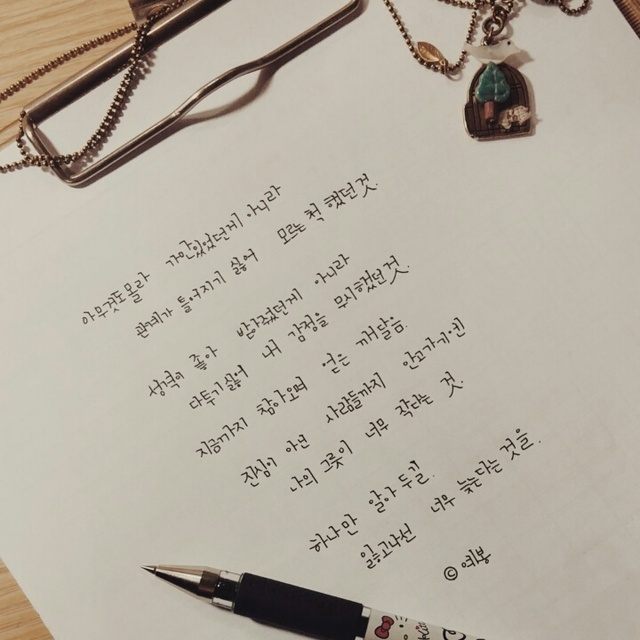 아무것도몰라 가만있었던게 아니라
관계가 틀어지기 싫어 모르는 척 했던 것.
성격이 좋아 받아줬던게 아니라
다투기 싫어 내 감정을 무시했던 것.
지금까지 참아오며 얻은 깨달음.
진심이 아닌 사람들까지 안고가기엔
나의 그릇이 너무 작다는 것.
하나만 알아두길.
잃고나선 너무 늦는다는 것을.
© 여봉